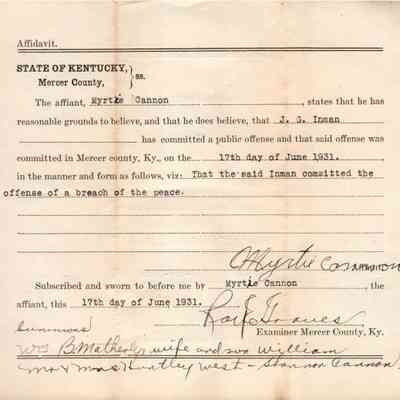 Affidavit.
STATE OF KENTUCKY, } ss.
Mercer County,
The affiant, Myrtle Cannon, states that he has
reasonable grounds to believe, and that he does believe, that J. G. Inman
has committed a public offense and that said offense was
committed in Mercer county, Ky., on the 17th day of June 1931.
in the manner and form as follows, viz: That the said Inman committed the
offense of a breach of the peace.
Myrtie Cannon
Subscribed and sworn to before me by Myrtle Cannon, the
affiant, this 17th day of June 1931.
Graves
Examiner Mercer County, Ky.
Summons
B. wife and son William
Mr & Mrs Huntley West - Shannon Cannon